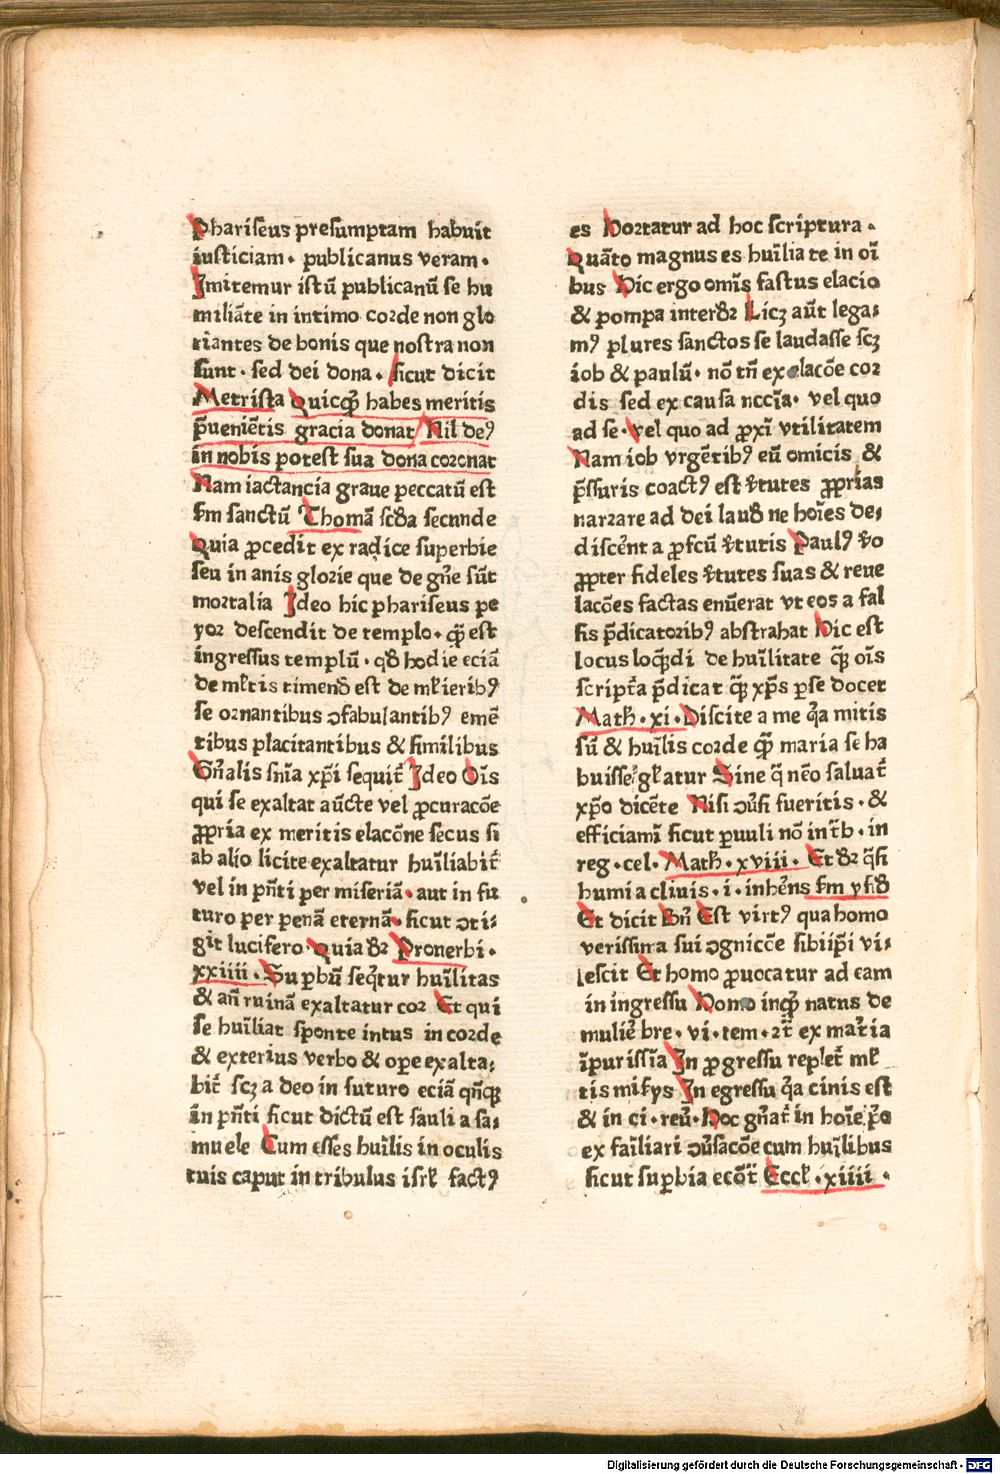 Phariſeus preſumptam habuit
iuſticiam· publicanus veram·
Jmitemur iſtū publicanū ſe hu
miliāte in intimo corde non glo
riantes de bonis que noſtra non
ſunt· ſed dei dona· ſicut dicit
Metriſta Quicqꝫ habes meritis
p̄ueniētis gracia donat/ Nil deꝰ
in nobis poteſt ſua dona coronat
Nam iactancia graue peccatū eſt
ẜm ſanctū Thomā ſcd̄a ſecunde
Quia ꝓcedit ex radice ſuperbie
ſeu in anis glorie que de gn̄e ſūt
mortalia Jdeo hic phariſeus pe
yor deſcendit de templo· qꝫ eſt
ingreſſus templū· qd̄ hodie eciā
de mꝉtis timend̄ eſt de mꝉieribꝰ
ſe ornantibus ꝯfabulantibꝰ emē
tibus placitantibus & ſimilibus
Gn̄alis ſnīa xp̄i ſequit᷑ Jdeo Oīs
qui ſe exaltat aūcte vel ꝓcuracōe
ꝓpria ex meritis elacōne ſecus ſi
ab alio licite exaltatur huīliabit᷑
vel in pn̄ti per miſeriā· aut in fu
turo per penā eternā· ſicut ꝯti⸗
git lucifero· Quia dr̄ Pronerbi·
xxiiii· Suꝑbū ſeq̄tur huīlitas
& an̄ ruinā exaltatur cor Et qui
ſe huīliat ſponte intus in corde
& exterius verbo & ope exalta⸗
bit᷑ ſcꝫ a deo in futuro eciā qn̄qꝫ
in pn̄ti ſicut dictū eſt ſauli a ſa⸗
muele Cum eſſes huīlis in oculis
tuis caput in tribulus iſrꝉ factꝰ
es Hortatur ad hoc ſcriptura·
Quāto magnus es huīlia te in oī
bus Hic ergo omīs faſtus elacio
& pompa interdr̄ Licꝫ aūt lega⸗
mꝰ plures ſanctos ſe laudaſſe ſcꝫ
iob & paulū· nō tn̄ ex elacōe cor
dis ſed ex cauſa nccīa· vel quo
ad ſe· vel quo ad ꝓxī vtilitatem
Nam iob vrgētibꝰ eū omicis &
p̄ſſuris coactꝰ eſt v̄tutes ꝓprias
narrare ad dei laud̄ ne hoīes de⸗
diſcēnt a ꝓfcū v̄tutis Paulꝰ v̄o
ꝓpter fideles v̄tutes ſuas & reue
lacōes factas enūerat vt eos a fal
ſis p̄dicatoribꝰ abſtrahat Hic eſt
locus loqn̄di de huīlitate qꝫ oīs
ſcript᷑a p̄dicat qꝫ xp̄s ꝑſe docet
Math̄· xi· Diſcite a me q̄a mitis
ſū & huīlis corde qꝫ maria ſe ha
buiſſe gꝉatur Sine q̄ nēo ſaluat᷑
xp̄o dicēte Niſi ꝯūſi fueritis· &
efficiamī ſicut ꝑuuli nō int᷑b· in
reg· cel· Math̄· xviii· Et dr̄ q̄ſi
humi a cliuis· i· inhēns ẜm yſid̄
Et dicit Bn̄ Eſt virtꝰ qua homo
veriſſima ſui ꝯgnicōe ſibiip̄i vi⸗
leſcit Et homo ꝓuocatur ad eam
in ingreſſu Homo inqꝫ natus de
mulie᷑ bre· vi· tem· ꝛt᷑ ex mat᷑ia
īpuriſſīa Jn ꝓgreſſu replet᷑ mꝉ
tis miſijs Jn egreſſu q̄a cinis eſt
& in ci· reu᷑· Hoc gn̄at᷑ in hoīe
ex faīliari ꝯūſacōe cum huīlibus
ſicut ſuꝑbia ecōt᷑ Eccꝉ· xiiii·
Digitalisierung gefördert durch die Deutsche Forschungsgemeinschaft - DFG